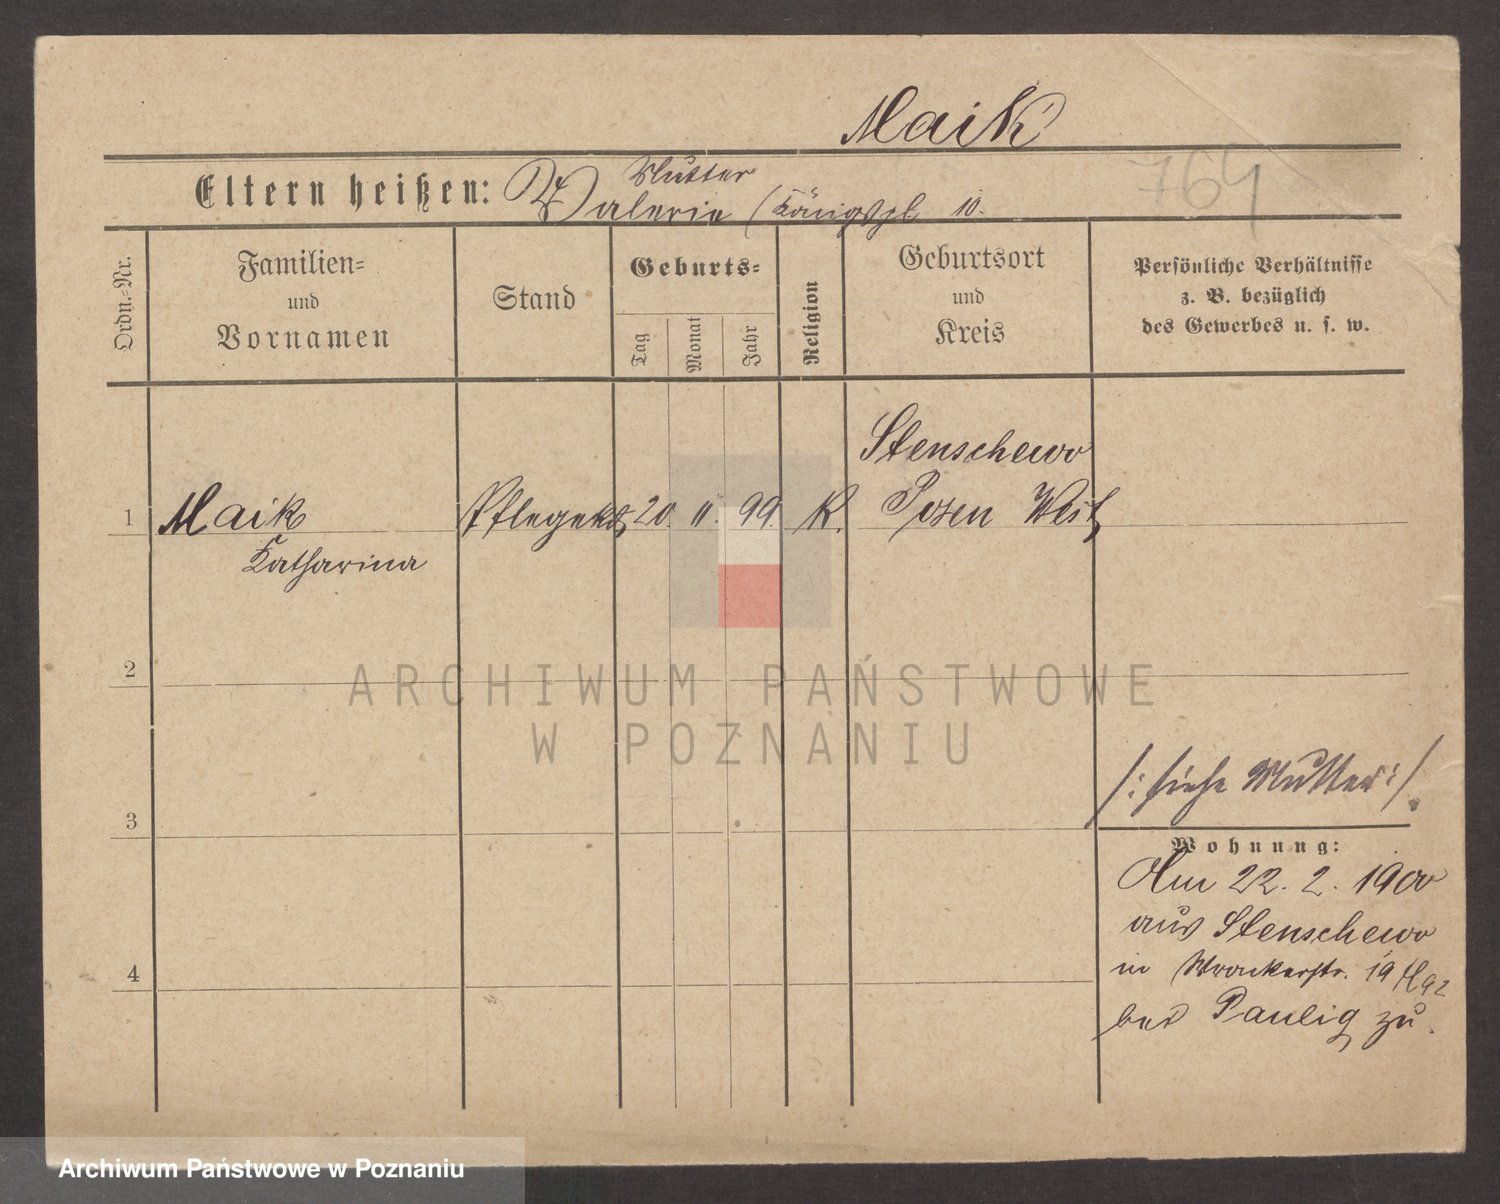 Maik
764
Eltern heißen: Mutter
Valerie (Königspl. 10.
Ordn.=Nr.
Familien=
und
Vornamen
Stand
Geburts=
Tag
Monat
Jahr
Religion
Geburtsort
und
Kreis
Persönliche Verhältnisse
z. B. bezüglich
des Gewerbes u. s. w.
Stenschewo
1 Maik Pflegekd 20. 11. 99. K. Posen West
Katharina
2
ARCHIWUM PAŃSTWOWE
W POZNANIU
/: siehe Mutter :/.
3
Wohnung:
Am 22. 2. 1900
aus Stenschewo
4
in Wronkerstr. 19
bei Paulig zu.
Archiwum Państwowe w Poznaniu